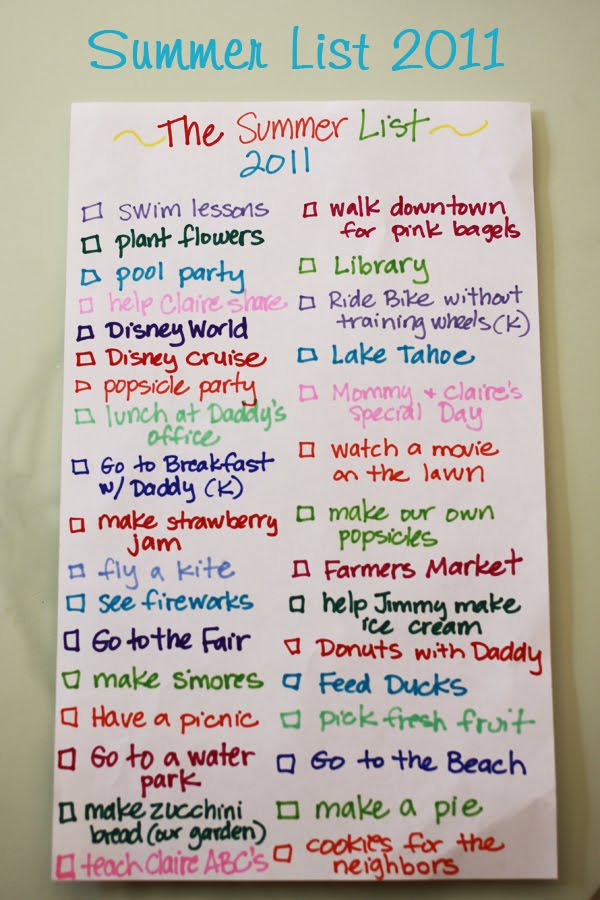 Summer List 2011
~The Summer List~
2011
swim lessons
plant flowers
pool party
help Claire share
Disney World
Disney Cruise
popsicle party
lunch at Daddy's
office
Go to Breakfast
w/ Daddy (K)
make strawberry
jam
fly a kite
see fireworks
Go to the Fair
make s'mores
Have a picnic
Go to a water
park
make zucchini
bread (our garden)
teach Claire ABC's
walk downtown
for pink bagels
Library
Ride Bike without
training wheels (K)
Lake Tahoe
Mommy + Claire's
Special Day
watch a movie
on the lawn
make our own
popsicles
Farmers Market
help Jimmy make
ice cream
Donuts with Daddy
Feed Ducks
pick fresh fruit
Go to the Beach
make a pie
cookies for the
neighbors